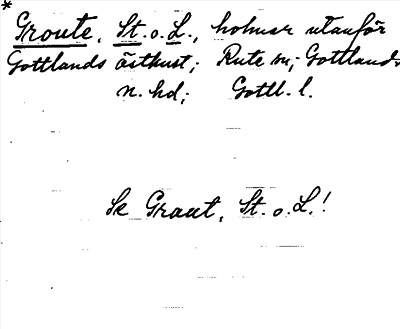 * Groute, St. o. L., holmar utanför
Gottlands östkust; Rute sn; Gottlands
n. hd; Gottl. l.
Se Graut, St. o. L.!